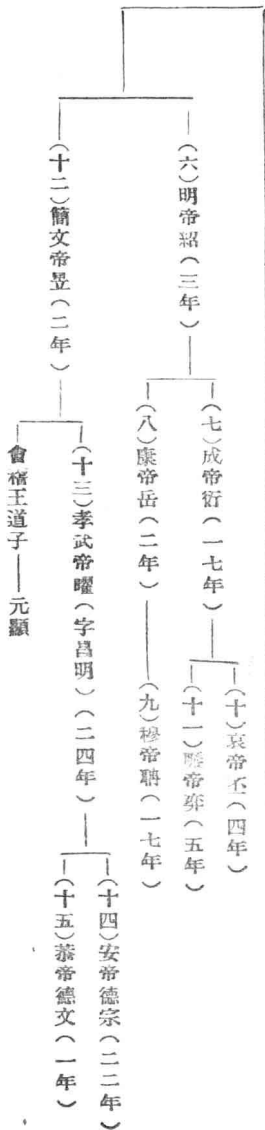 (六)明帝紹(三年)
(七)成帝衍(一七年)
(十)哀帝丕(四年)
(十一)廢帝奕(五年)
(八)康帝岳(二年)
(九)穆帝聃(一七年)
(十二)簡文帝昱(二年)
(十三)孝武帝曜(字昌明)(二四年)
(十四)安帝德宗(二二年)
(十五)恭帝德文(一年)
會稽王道子
元顯